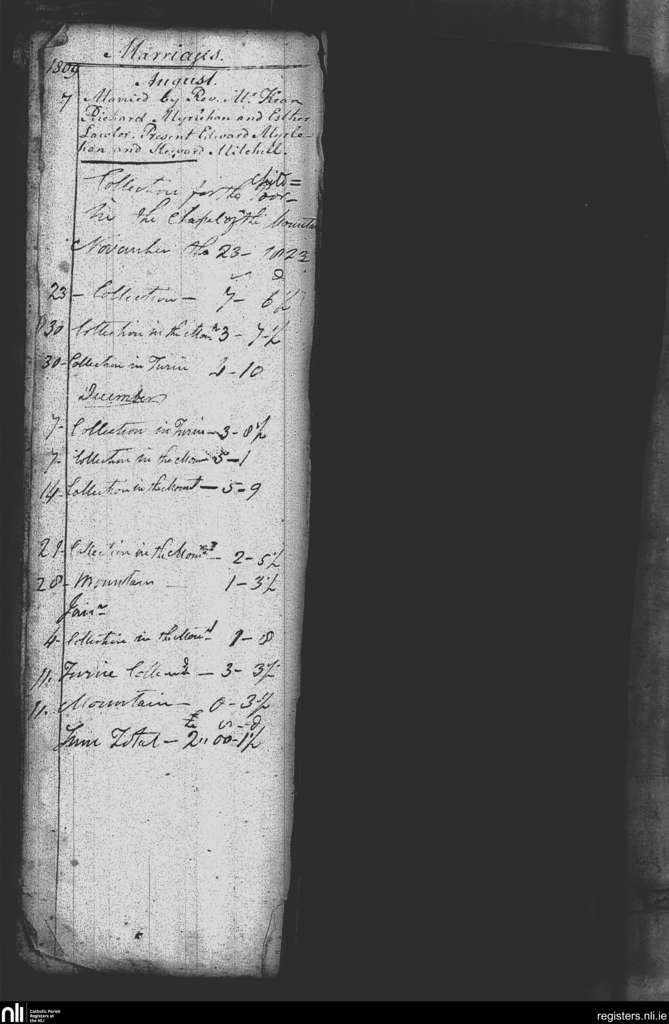 Marriages.
1809
August.
7 Married by Rev. Mr. Kean
Richard Myrehan and Esther
Lawlor. Present Edward Myre-
han and Mitchell.
Collection for the
Poor
in the Chapel of the Mountn
November the 23 - 1823
s d
23 - Collection - 7 - 6 ½
30 Collection in the Mon 3 - 7 ½
30 - Collection in Turin 4 - 10
December
7 - Collection in Turin - 3 - 8 ½
7 - Collection in the Mon - 5 - 1
14 - Collection in the Mount - 5 - 9
21 - Collection in the Mount - 2 - 5 ½
28 - Mountain - 1 - 3 ½
Jan
4 - Collection in the Moun - 1 - 8
11. Turin - 3 - 3 ½
11. Mountain - 0 - 3 ½
£ s - d
Sum Total - 2 " 00 - 1 ½
nli
Catholic Parish
Registers at
the NLI
registers.nli.ie